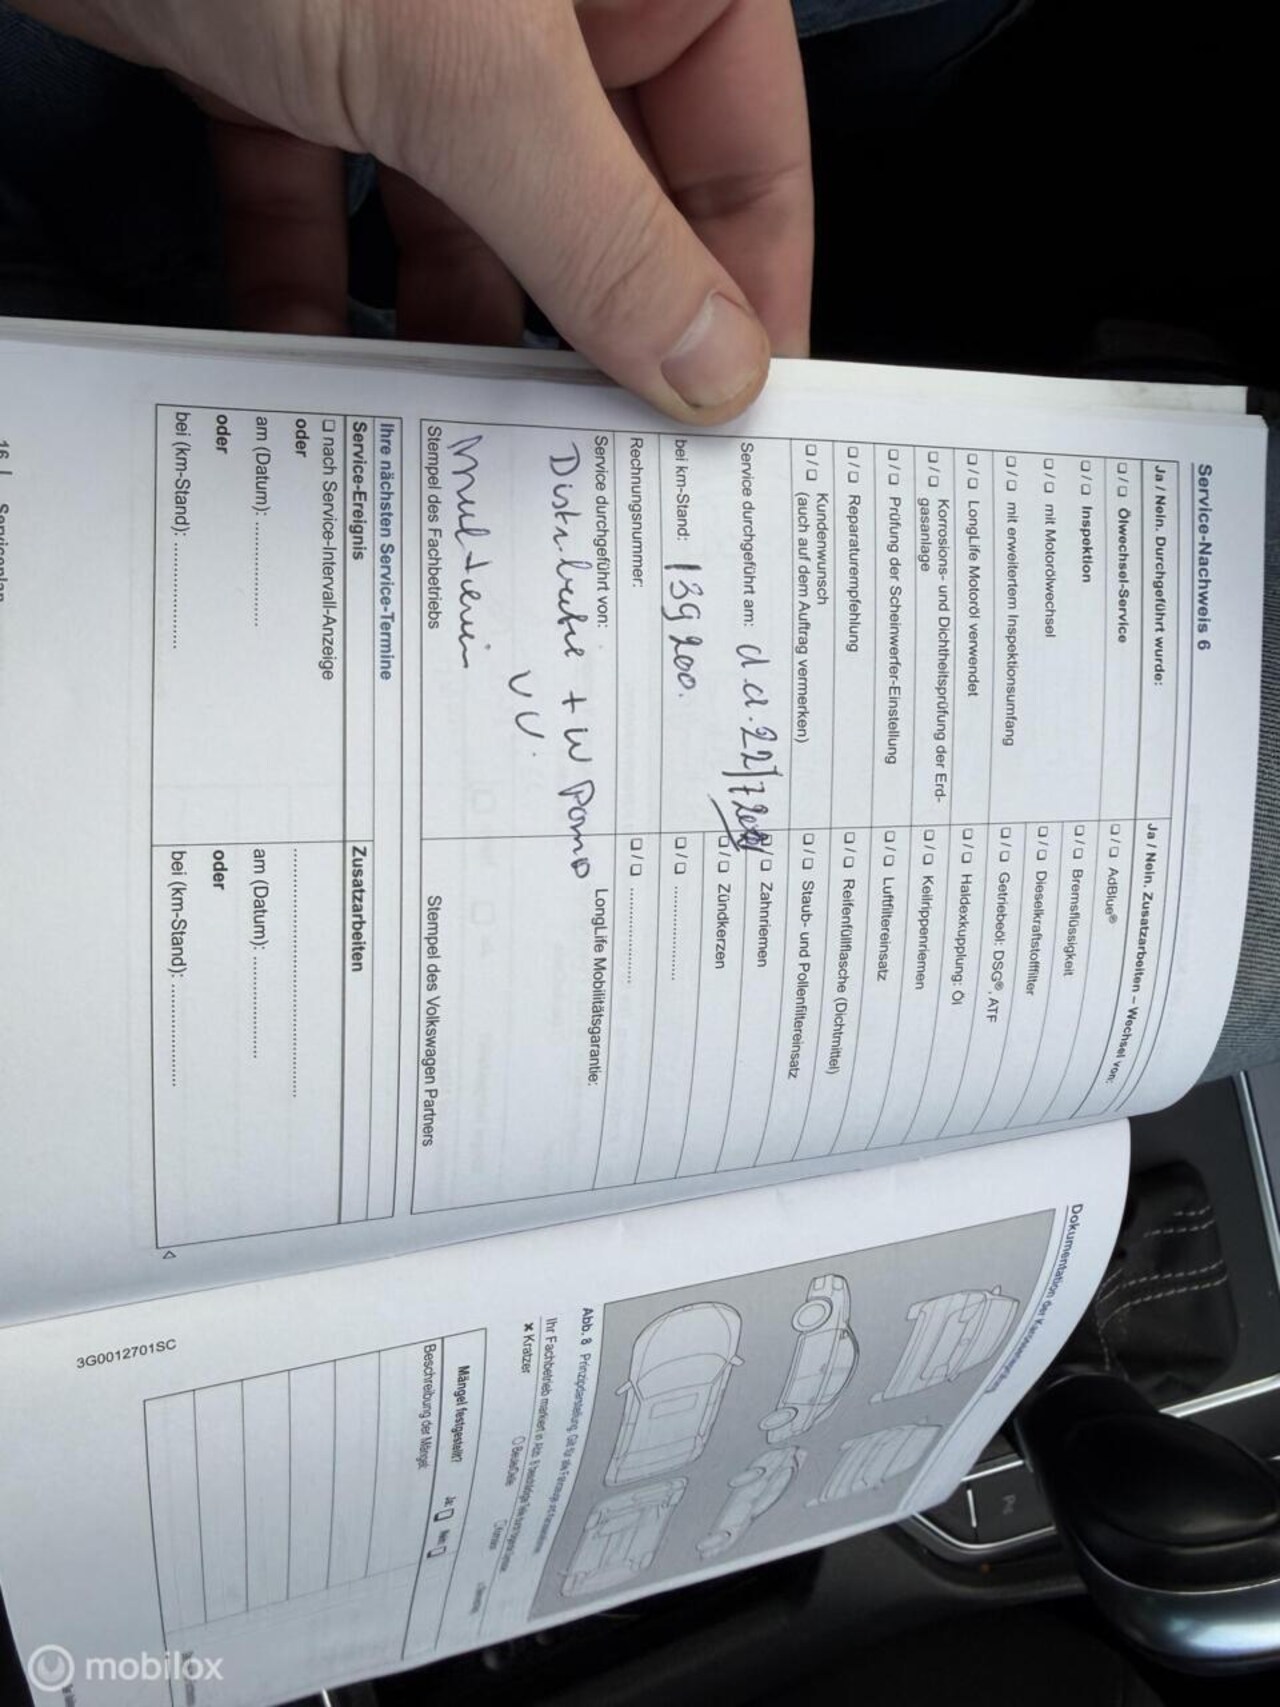 Service-Nachweis 6
Ja / Nein. Durchgeführt wurde:
❏ / ❏ Ölwechsel-Service
❏ / ❏ Inspektion
❏ / ❏ mit Motorölwechsel
❏ / ❏ mit erweitertem Inspektionsumfang
❏ / ❏ LongLife Motoröl verwendet
❏ / ❏ Korrosions- und Dichtheitsprüfung der Erd-
gasanlage
❏ / ❏ Prüfung der Scheinwerfer-Einstellung
❏ / ❏ Reparaturempfehlung
❏ / ❏ Kundenwunsch
(auch auf dem Auftrag vermerken)
Service durchgeführt am: d.d. 22/7
bei km-Stand: 139200.
Rechnungsnummer:
Service durchgeführt von:
Distributie + W Pomp
VV.
Multiriem
Stempel des Fachbetriebs
Ja / Nein. Zusatzarbeiten – Wechsel von:
❏ / ❏ AdBlue®
❏ / ❏ Bremsflüssigkeit
❏ / ❏ Dieselkraftstofffilter
❏ / ❏ Getriebeöl: DSG®, ATF
❏ / ❏ Haldexkupplung: Öl
❏ / ❏ Keilrippenriemen
❏ / ❏ Luftfiltereinsatz
❏ / ❏ Reifenfüllflasche (Dichtmittel)
❏ / ❏ Staub- und Pollenfiltereinsatz
❏ / ❏ Zahnriemen
❏ / ❏ Zündkerzen
❏ / ❏ ..................
❏ / ❏ ..................
LongLife Mobilitätsgarantie:
Stempel des Volkswagen Partners
Ihre nächsten Service-Termine
Service-Ereignis
❏ nach Service-Intervall-Anzeige
oder
am (Datum): ..................
oder
bei (km-Stand): ..................
Zusatzarbeiten
..........................................
am (Datum): ..................
oder
bei (km-Stand): ..................
16 | Serviceplan
Dokumentation der
Abb. 8 Prinzipdarstellung: Gilt für alle Fahrzeuge
Ihr Fachbetrieb markiert in Abb. 8
✘ Kratzer
Mängel festgestellt? Ja: ❏ Nein: ❏
Beschreibung der Mängel:
3G0012701SC
mobilox